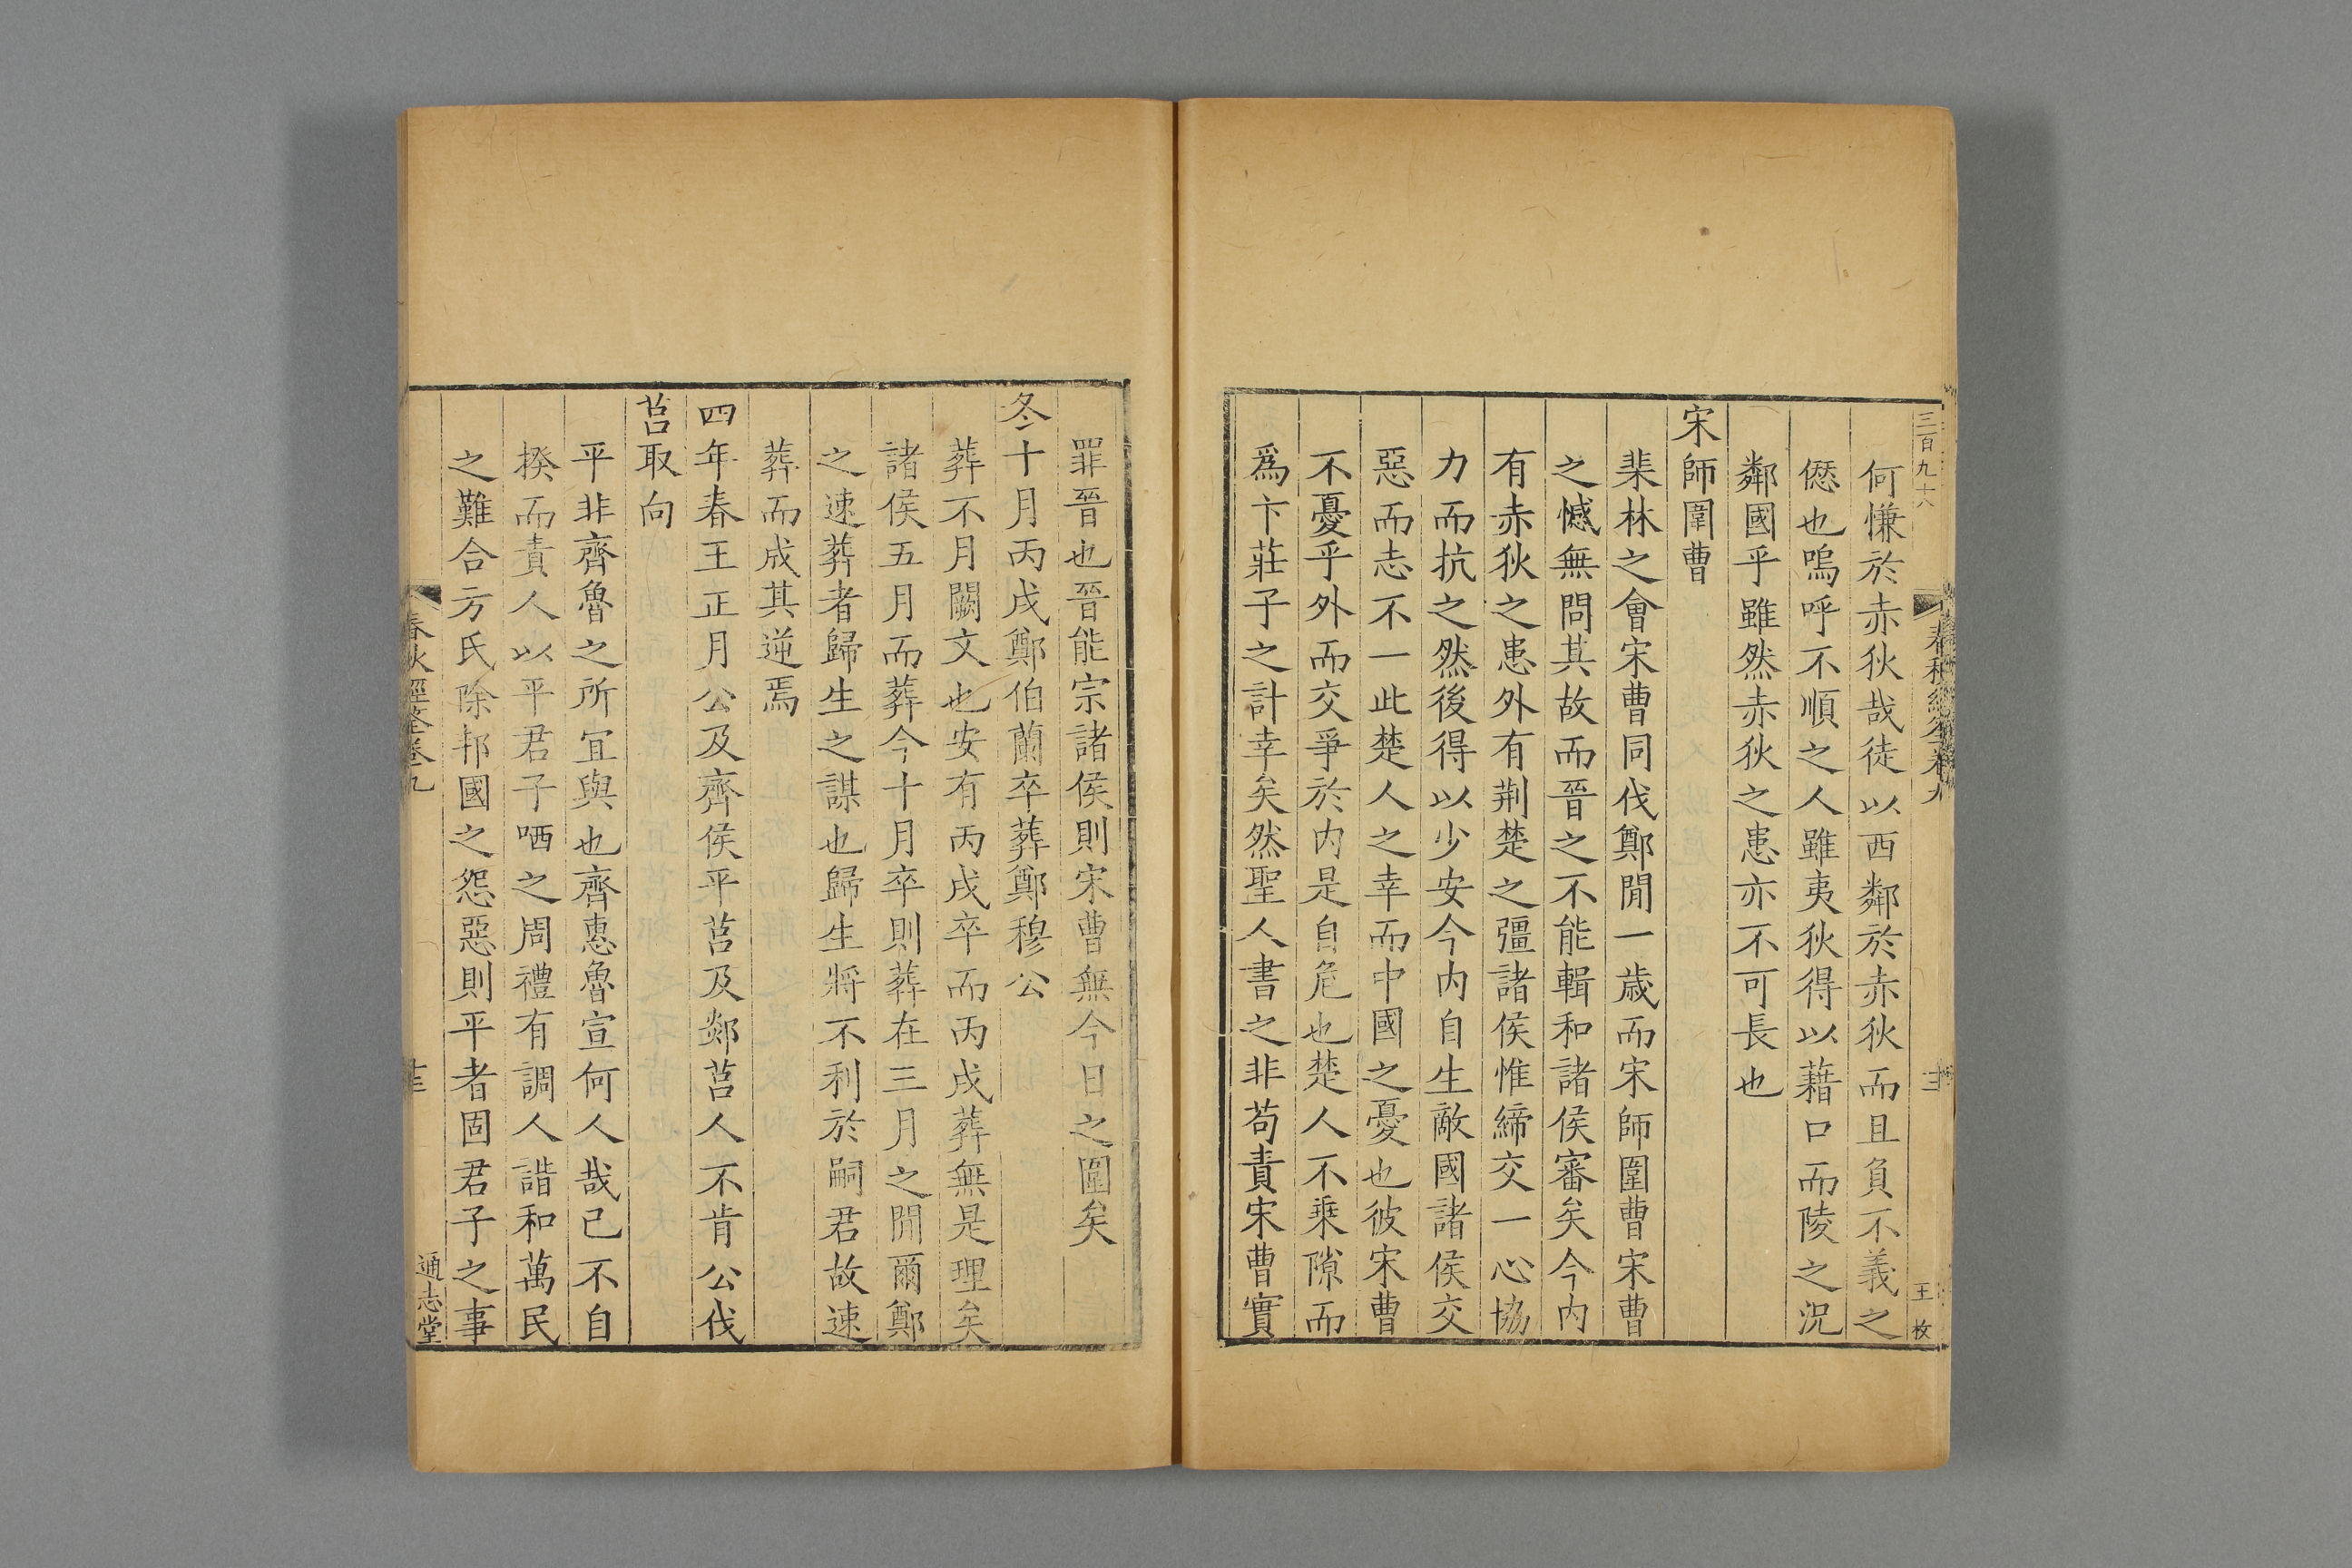 三百九十八
春秋經筌卷九
十二
王枚
何慊於赤狄哉徒以西鄰於赤狄而且負不義之
僽也嗚呼不順之人雖夷狄得以藉口而陵之況
鄰國乎雖然赤狄之患亦不可長也
宋師圍曹
棐林之會宋曹同伐鄭閒一歲而宋師圍曹宋曹
之憾無問其故而晉之不能輯和諸侯審矣今內
有赤狄之患外有荆楚之彊諸侯惟締交一心協
力而抗之然後得以少安今內自生敵國諸侯交
惡而志不一此楚人之幸而中國之憂也彼宋曹
不憂乎外而交爭於內是自危也楚人不乗隙而
爲卞莊子之計幸矣然聖人書之非苟責宋曹實
罪晉也晉能宗諸侯則宋曹無今日之圍矣
冬十月丙戌鄭伯蘭卒葬鄭穆公
葬不月闕文也安有丙戌卒而丙戌葬無是理矣
諸侯五月而葬今十月卒則葬在三月之閒爾鄭
之速葬者歸生之謀也歸生將不利於嗣君故速
葬而成其逆焉
四年春王正月公及齊侯平莒及郯莒人不肯公伐
莒取向
平非齊魯之所宜與也齊惠魯宣何人哉已不自
揆而責人以平君子哂之周禮有調人諧和萬民
之難合方氏除邦國之怨惡則平者固君子之事
春秋經筌卷九
通志堂